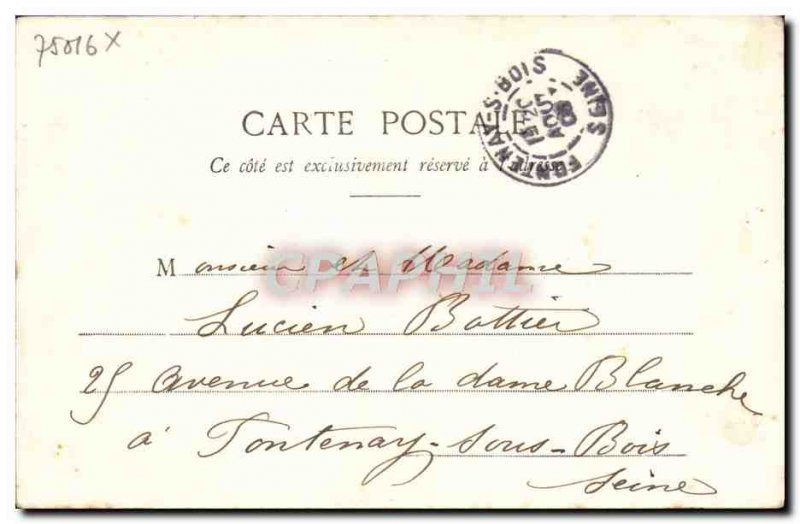 75016 X
CARTE POSTALE
FONTENAY-S-BOIS SEINE
AOUT
Ce côté est exclusivement réservé à l'adresse
Monsieur et Madame
CPAPHIL
Lucien Bottier
25 avenue de la dame Blanche
à Fontenay-sous-Bois
Seine